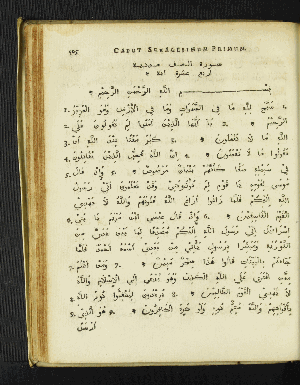 CAPUT SEXAGESIMUM PRIMUM.
سورة الصف مدنية
اربع عشرة اية
بسم الله الرحمن الرحيم
سبح لله ما في السموات وما في الارض وهو العزيز
الحكيم * يا ايها الذين امنوا لم تقولون
ما لا تفعلون * كبر مقتا عند الله ان
تقولوا ما لا تفعلون * ان الله يحب الذين يقاتلون
في سبيله صفا كانهم بنيان مرصوص * واذ قال
موسي لقومه يا قوم لم توذونني وقد تعلمون اني رسول
الله اليكم فلما زاغوا ازاغ الله قلوبهم والله لا يهدي
القوم الفاسقين * واذ قال عيسي ابن مريم يا بني
اسرايل اني رسول الله اليكم مصدقا لما بين يدي من
التورية ومبشرا برسول ياتي من بعدي اسمه احمد فلما
جاءهم بالبينات قالوا هذا سحر مبين * ومن اظلم
ممن افتري علي الله الكذب وهو يدعي الي الاسلام والله
لا يهدي القوم الظالمين * يريدون ليطفوا نور الله
بافواههم والله متم نوره ولو كره الكافرون * هو الذي
ارسل